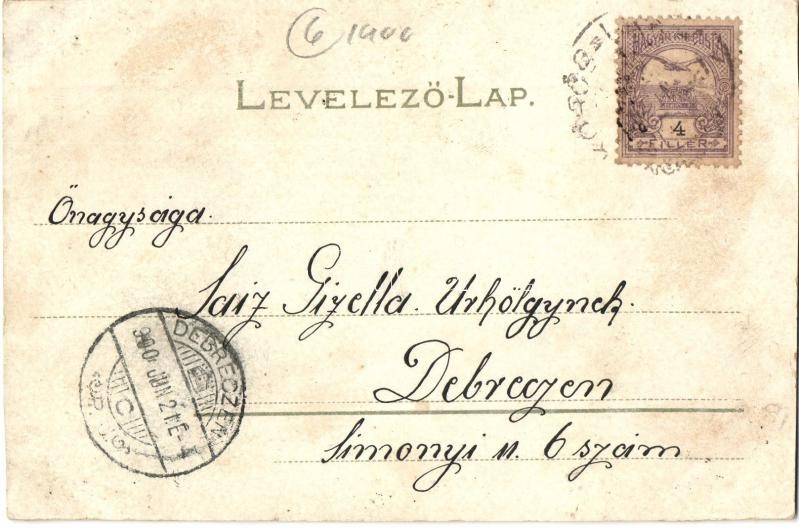 6 1900
LEVELEZŐ-LAP.
MAGYAR KIR. POSTA
4
FILLÉR
Önagysága.
Saiz Gizella Urhölgynek.
Debreczen
Simonyi u. 6 szám
DEBRECZEN
900 JUN 21
C